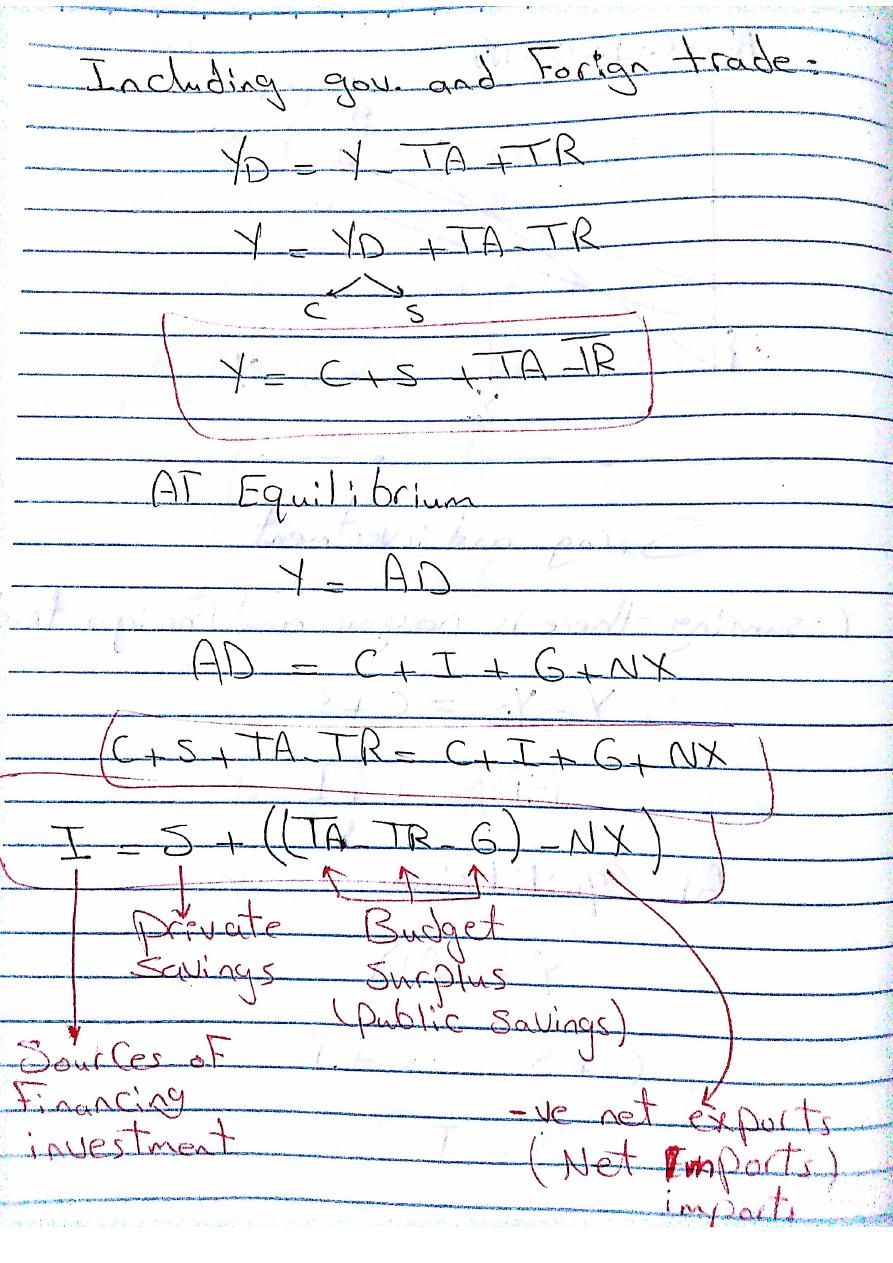 Including gov. and Forign trade:
YD = Y - TA + TR
Y = YD + TA - TR
C S
Y = C + S + TA - TR
AT Equilibrium
Y = AD
AD = C + I + G + NX
C + S + TA - TR = C + I + G + NX
I = S + ((TA - TR - G) - NX)
Private Savings
Budget Surplus (Public Savings)
Sources of Financing investment
-ve net exports
(Net Imports)
imports